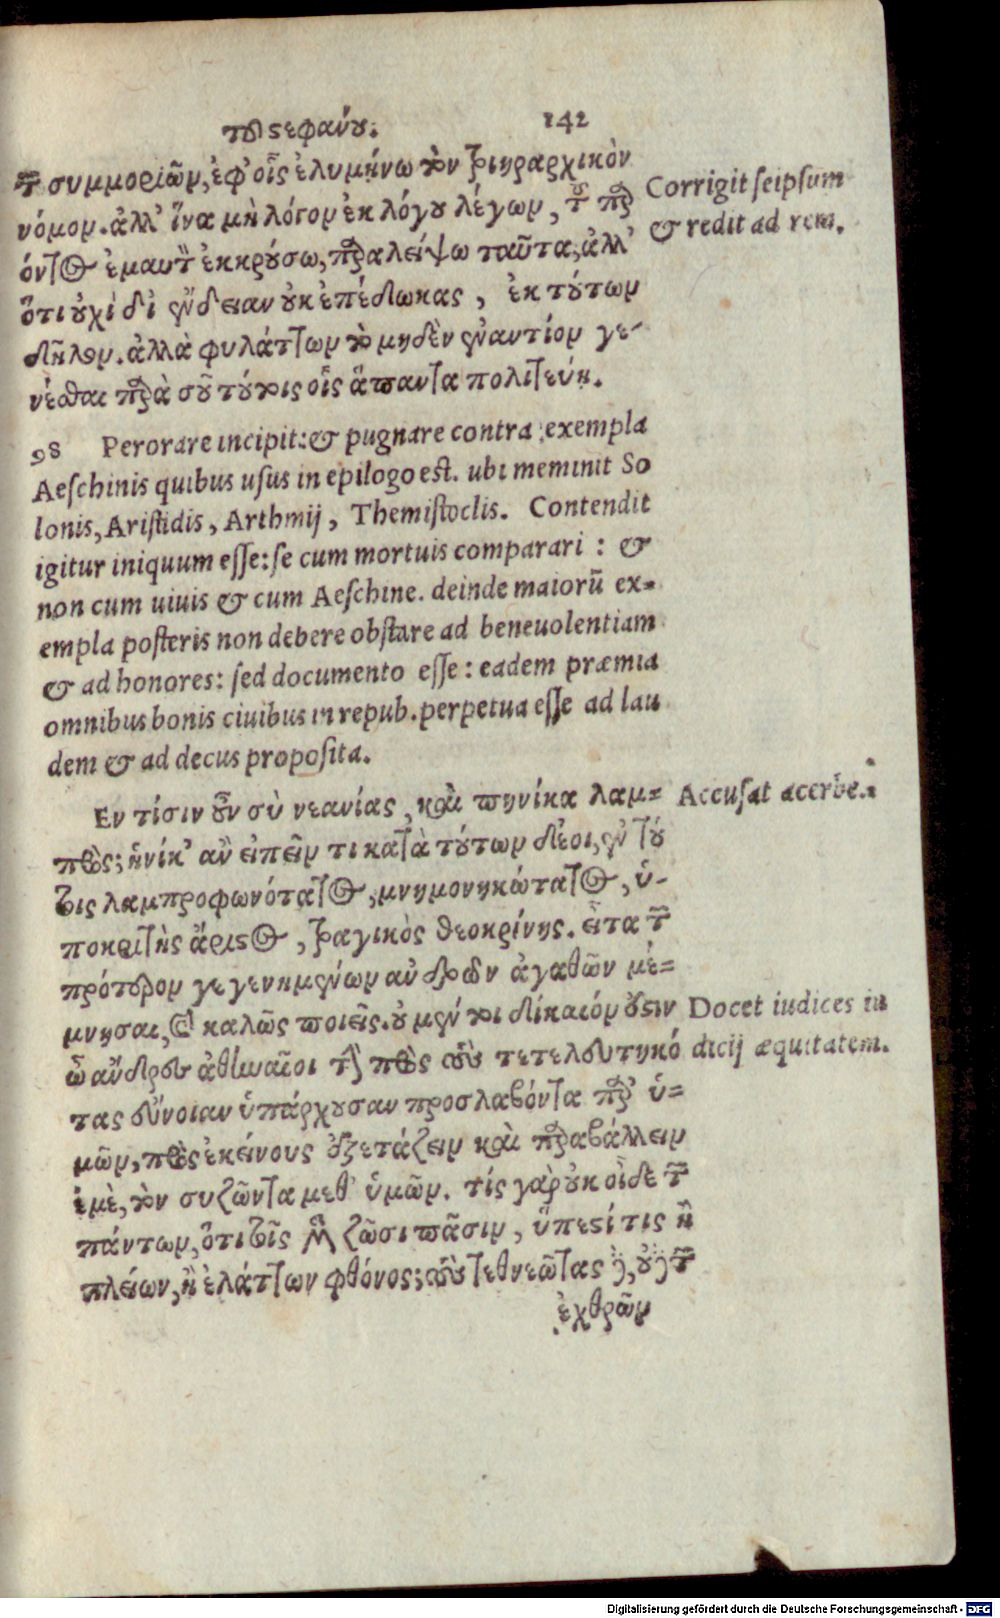 τοῦ στεφάνου. 142
τῶν συμμοριῶν, ἐφ' οἷς ἐλυμήνω τὸν τριηραρχικὸν
νόμον. ἀλλ' ἵνα μὴ λόγον ἐκ λόγου λέγων, τοῦ παρ
όντος ἐμαυτὸν ἐκκρούσω, παραλείψω ταῦτα, ἀλλ'
ὅτι οὐχὶ δι' ἔνδειαν οὐκ ἐπέδωκας, ἐκ τούτων
δῆλον. ἀλλὰ φυλάττων τὸ μηδὲν ἐναντίον γε-
νέσθαι παρὰ σοῦ τούτοις οἷς ἅπαντα πολιτεύῃ.
Corrigit seipsum
& redit ad rem.
98 Perorare incipit: & pugnare contra exempla
Aeschinis quibus usus in epilogo est. ubi meminit So
lonis, Aristidis, Arthmij, Themistoclis. Contendit
igitur iniquum esse: se cum mortuis comparari: &
non cum uiuis & cum Aeschine. deinde maiorū ex=
empla posteris non debere obstare ad beneuolentiam
& ad honores: sed documento esse: eadem præmia
omnibus bonis ciuibus in repub. perpetua esse ad lau
dem & ad decus proposita.
Εν τίσιν οὖν σὺ νεανίας, καὶ πηνίκα λαμ=
πρός; ἡνίκ' ἂν εἰπεῖν τι κατὰ τούτων δέοι, ἐν τού
τοις λαμπροφωνότατος, μνημονηκώτατος, ὑ-
ποκριτὴς ἄριστος, τραγικὸς θεοκρίνης. εἶτα τῶν
πρότερον γεγενημένων ἀνδρῶν ἀγαθῶν μέ=
μνησαι, καὶ καλῶς ποιεῖς. οὐ μέντοι δίκαιόν ἐστιν
ὦ ἄνδρες ἀθηναῖοι τὴν πρὸς τοὺς τετελευτηκό
τας εὔνοιαν ὑπάρχουσαν προσλαβόντα παρ' ὑ=
μῶν, πρὸς ἐκείνους ἐξετάζειν καὶ παραβάλλειν
ἐμὲ, τὸν συζῶντα μεθ' ὑμῶν. τίς γὰρ οὐκ οἶδε τῶν
πάντων, ὅτι τοῖς μὲν ζῶσι πᾶσιν, ὕπεστί τις ἢ
πλείων, ἢ ἐλάττων φθόνος; τοὺς τεθνεῶτας δὲ, οὐδὲ τῶν
ἐχθρῶν
Accusat acerbe.
Docet iudices iu
dicij æquitatem.
Digitalisierung gefördert durch die Deutsche Forschungsgemeinschaft - DFG